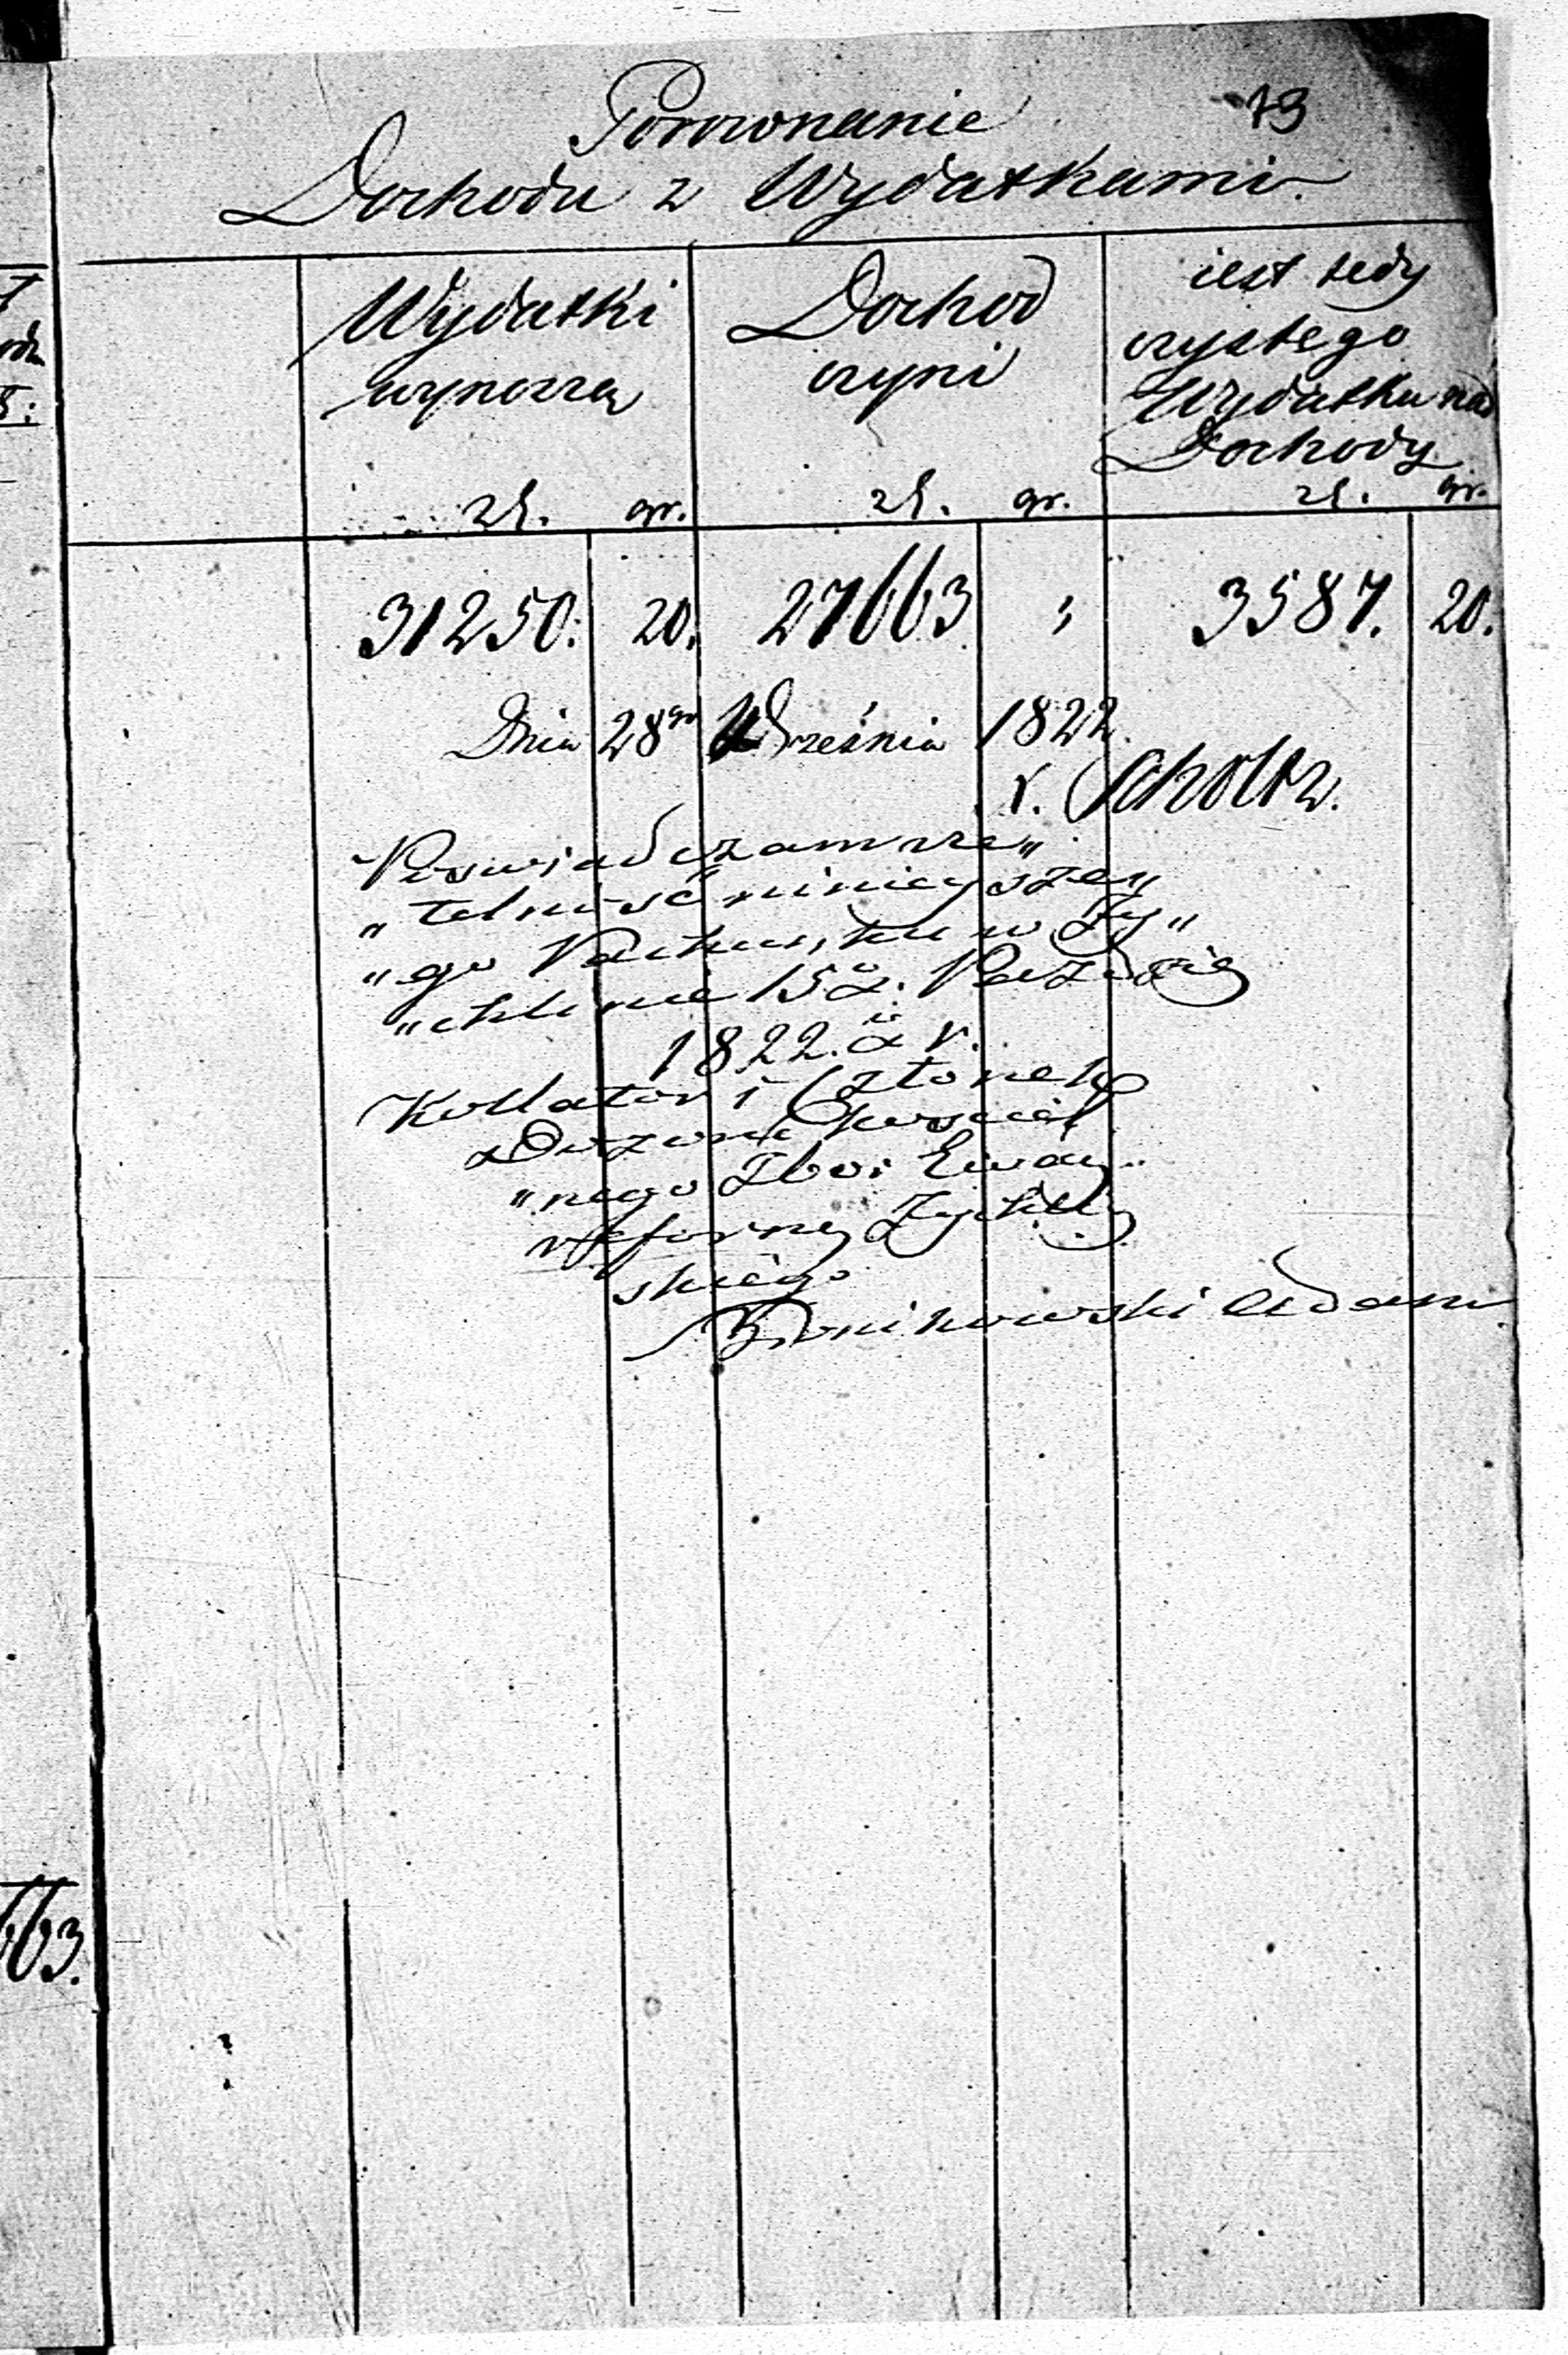 73
Porownanie
Dochodu z Wydatkami
Wydatki
wynoszą
zł. gr.
Dochod
czyni
zł. gr.
iest tedy
czystego
Wydatku nad
Dochody
zł. gr.
31250. 20. 27663 3587. 20.
Dnia 28go Września 1822
r. Scholtz.
Poswiadczam rze„
„telność ninieyszey
„go Rachunku w Ży„
„chlinie 15 Pazdzie
1822. r.
Kollator i Członek
Dozoru Kosciel
„nego Zboru Ewan„
reformo Żychliń
skiego
Bronikowski Adam
663.